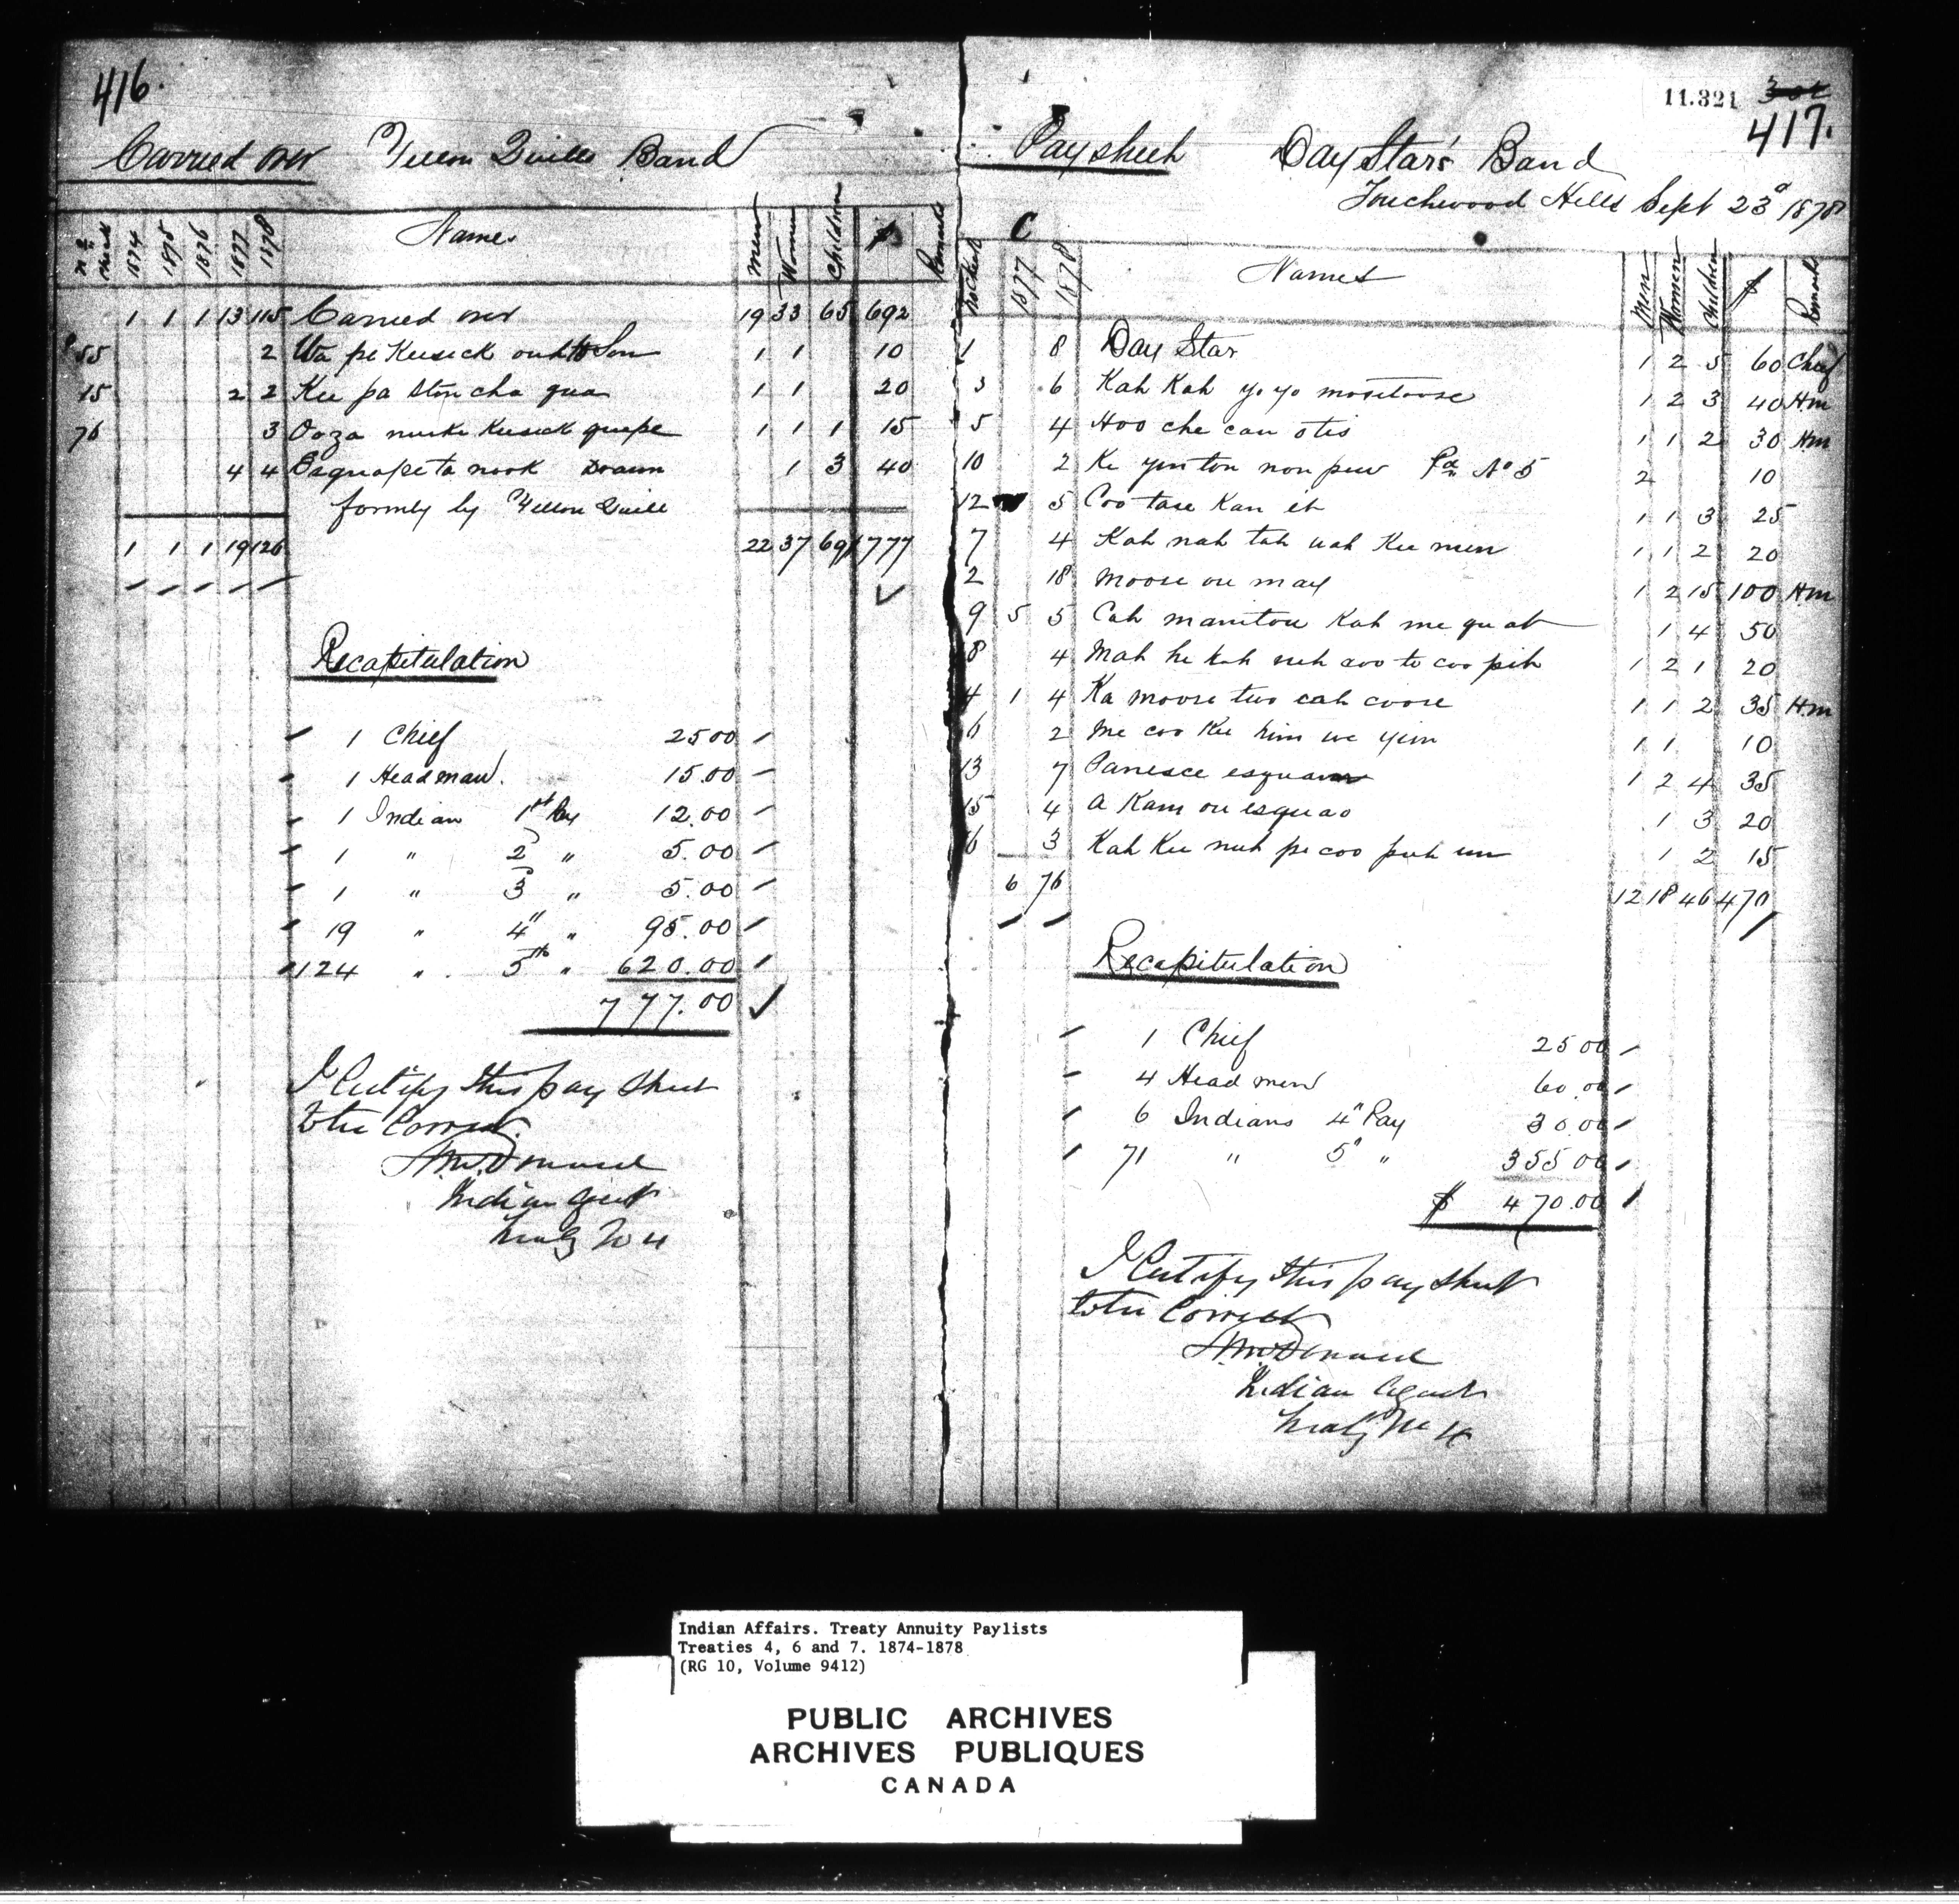 416.
Carried over Yellow Quills Band
No of check 1874 1875 1876 1877 1878 Names Men Women Children $ Remarks
1 1 1 13 115 Carried over 19 33 65 692
55 2 Wa pe Keesick Son 1 1 10
15 2 2 Kee pa ston cha qua 1 1 20
76 3 Ooza muske Keesick quepe 1 1 1 15
4 4 Esquapeta nook Drawn 1 3 40
formly by Yellow Quill
1 1 1 19 126 22 37 69 777
Recapitulation
1 Chief 25 00
1 Headman. 15.00
1 Indian 1st Pay 12.00
1 " 2 " 5.00
1 " 3 " 5.00
19 " 4" " 95.00
124 " 5th " 620.00
777.00
I Certify this pay sheet
to be Correct.
A McDonald
Indian Agent
Treaty No 4
11.321
417.
Pay sheet Day Star's Band
Touchwood Hills Sept 23d 1878
C
No Check 1877 1878 Names Men Women Children $ Remarks
1 8 Day Star 1 2 5 60 Chief
3 6 Kah Kah yo yo mostoose 1 2 3 40 H.m
5 4 Hoo che cau otis 1 1 2 30 H.m
10 2 Ke yin ton non pew Pd No 5 2 10
12 5 Coo tase Kan it 1 1 3 25
7 4 Kah nah tah uah Kee men 1 1 2 20
2 18 Moose ou may 1 2 15 100 H.m
9 5 5 Cah manitou Kah me qu at 1 4 50
8 4 Mah he kah neh aoo te coo pih 1 2 1 20
4 1 4 Ka moose two cah coose 1 1 2 35 H.m
6 2 Me coo Kee him we yim 1 1 10
13 7 Panesce esquaw 1 2 4 35
15 4 A Kam ou esquao 1 3 20
6 3 Kah Kee nuh pe coo puh um 1 2 15
6 76 12 18 46 470
Recapitulation
1 Chief 25 00
4 Head men 60.00
6 Indians 4" Pay 30.00
71 " 5" " 355 00
$ 470.00
I Certify this pay sheet
to be Correct
A McDonald
Indian Agent
Treaty No 4
Indian Affairs. Treaty Annuity Paylists
Treaties 4, 6 and 7. 1874-1878
(RG 10, Volume 9412)
PUBLIC ARCHIVES
ARCHIVES PUBLIQUES
CANADA